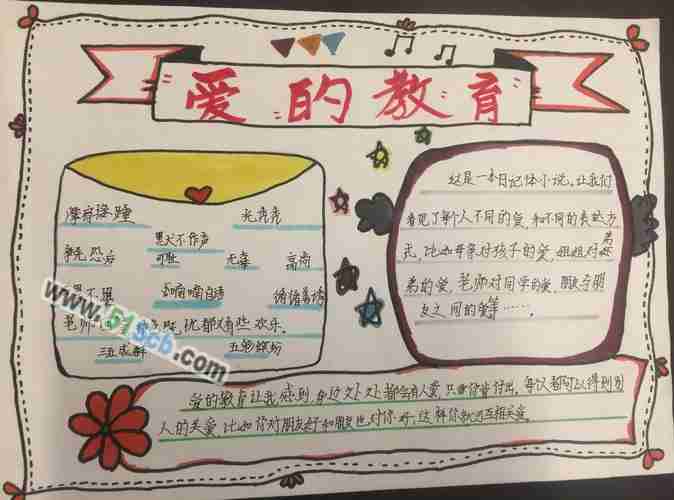 爱的教育
光秃秃
争先恐后 默不作声
可耻 无辜 高尚
自言自语
老师 犹都有些欢乐。
三五成群 五彩缤纷
www.51scb.com
这是一本日记体小说。让我们
看见了每个人不同的爱,和不同的表达方
式,比如母亲对孩子的爱,姐姐对弟
弟的爱,老师对同学的爱,朋友与朋
友之间的爱等……。
爱的教育让我感到,身边处处都会有人爱,只要你肯付出,每次都可以得到别
人的关爱,比如你对朋友好和朋友也对你好,这样你就可互相关爱。